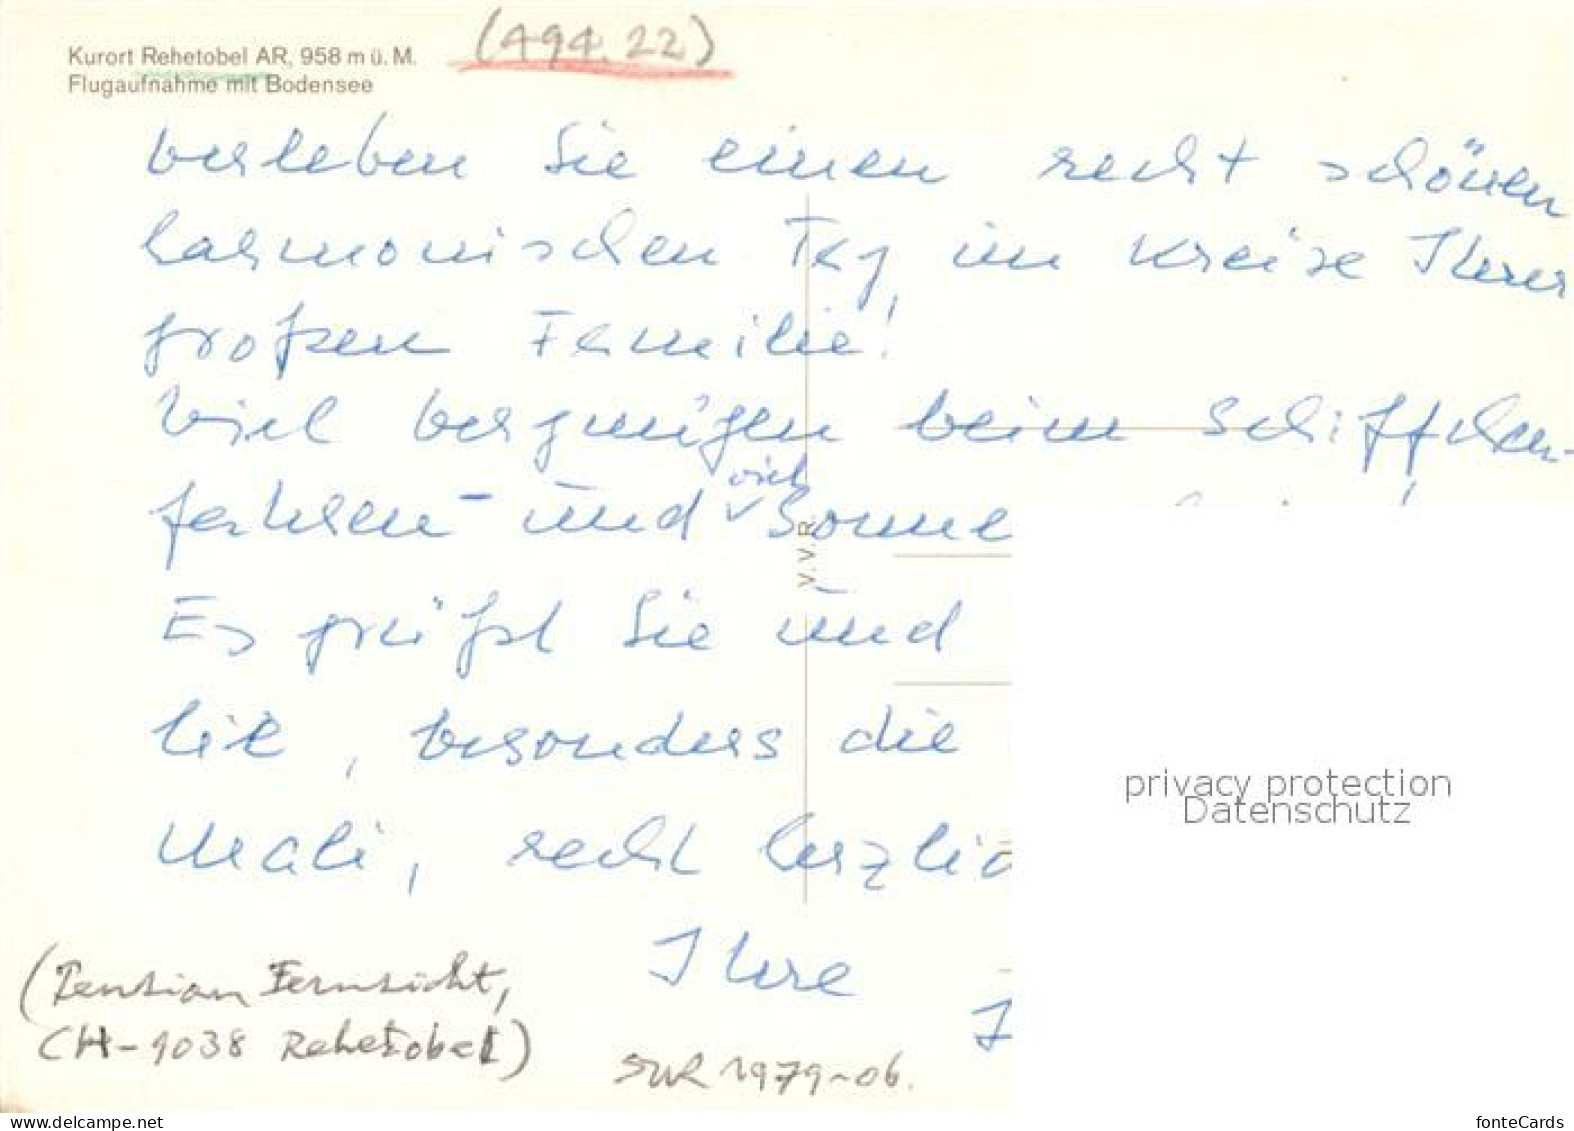 Kurort Rehetobel AR, 958 m ü. M.
Flugaufnahme mit Bodensee
(494.22)
verleben Sie einen recht schönen
harmonischen Tag im Kreise Ihrer
großen Familie!
Viel vergnügen beim Schiffchen-
fahren - und viel Sonne
V.V.R.
Es grüßt Sie und
lie, besonders die
Mali, recht herzlic
Ihre
(Pension Fernsicht,
CH-9038 Rehetobel)
SWR 1979-06.
privacy protection
Datenschutz
www.delcampe.net
fonteCards